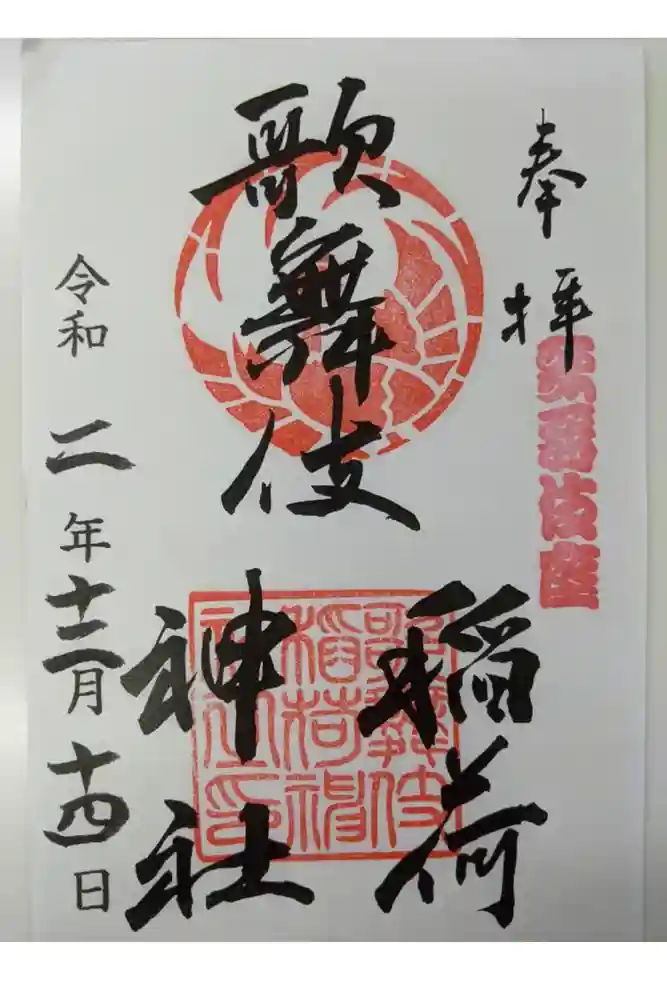 奉拝
歌舞伎座
歌舞伎
稲荷
神社
歌舞伎
稲荷神
社之印
令和二年十二月十四日